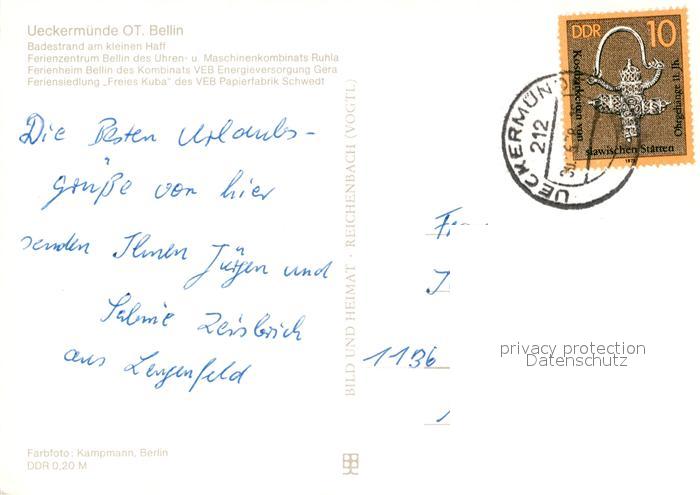 Ueckermünde OT. Bellin
Badestrand am kleinen Haff
Ferienzentrum Bellin des Uhren- u. Maschinenkombinats Ruhla
Ferienheim Bellin des Kombinats VEB Energieversorgung Gera
Feriensiedlung „Freies Kuba" des VEB Papierfabrik Schwedt
Die Besten Urlaubs-
grüße von hier
senden Ihnen Jürgen und
Sabine
aus Lengenfeld
Farbfoto: Kampmann, Berlin
DDR 0,20 M
BILD UND HEIMAT · REICHENBACH (VOGTL)
DDR 10
Kostbarkeiten von
slawischen Stätten
Ohrgehänge 11. Jh.
UECKERMÜN
212
1136
privacy protection
Datenschutz